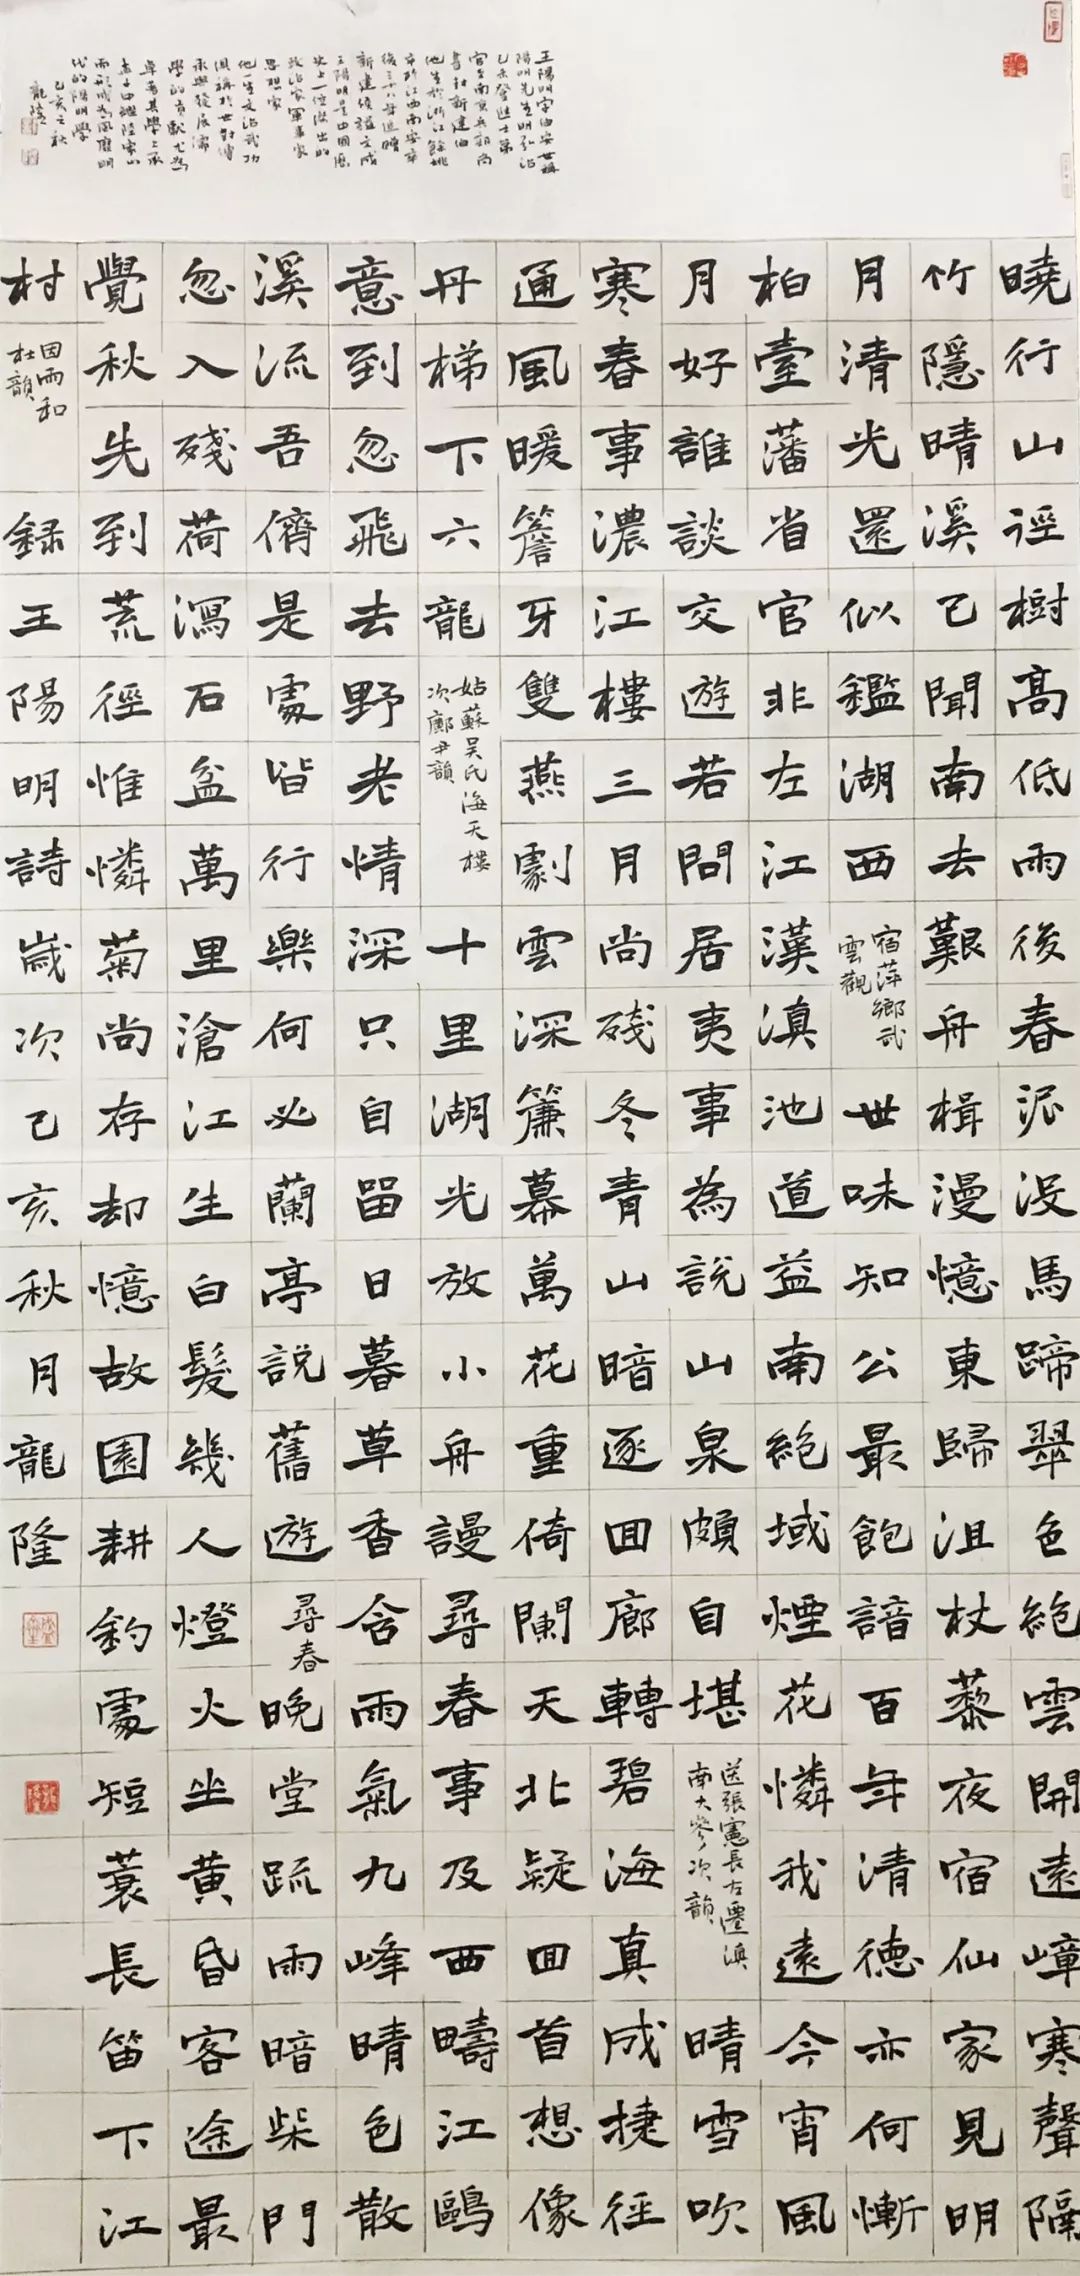 王陽明字伯安世稱
陽明先生明弘治
己未登進士第
官至南京兵部尚
書封新建伯
他生於浙江餘姚
卒於江西南安卒
後三十八年追贈
新建侯謚文成
王陽明是中國歷
史上一位傑出的
政治家軍事家
思想家
他一生文治武功
俱稱於世對傳
承與發展儒
學的貢獻尤為
卓著其學上承
孟子中繼陸象山
而形成為風靡明
代的陽明學
己亥之秋
龍隆
曉行山徑樹高低雨後春泥没馬蹄翠色絶雲開遠嶂寒聲隔
竹隱晴溪已聞南去艱舟楫漫憶東歸沮杖藜夜宿仙家見明
月清光還似鑑湖西
宿萍鄉武
雲觀
世味知公最飽諳百年清德亦何慚
柏臺藩省官非左江漢滇池道益南絶域煙花憐我遠今宵風
月好誰談交遊若問居夷事為說山泉頗自堪
送張憲長左遷滇
南大參次韻
晴雪吹
寒春事濃江樓三月尚殘冬青山暗逐回廊轉碧海真成捷徑
通風暖簷牙雙燕劇雲深簾幕萬花重倚闌天北疑回首想像
丹梯下六龍
姑蘇吳氏海天樓
次鄺尹韻
十里湖光放小舟謾尋春事及西疇江鷗
意到忽飛去野老情深只自留日暮草香含雨氣九峰晴色散
溪流吾儕是處皆行樂何必蘭亭說舊遊
尋春
晚堂疏雨暗柴門
忽入殘荷瀉石盆萬里滄江生白髮幾人燈火坐黃昏客途最
覺秋先到荒徑惟憐菊尚存却憶故園耕釣處短蓑長笛下江
村
因雨和
杜韻
録王陽明詩歲次己亥秋月龍隆